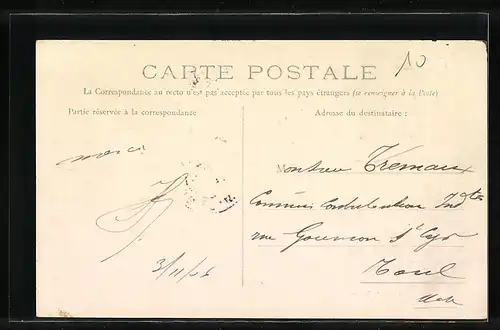 10
CARTE POSTALE
La Correspondance au recto n'est pas acceptée par tous les pays étrangers (se renseigner à la Poste)
Partie réservée à la correspondance
Adresse du destinataire :
merci
3/11/06
Monsieur Tremaux
Commis Contributions Indtes
rue Gouvion St Cyr
Toul